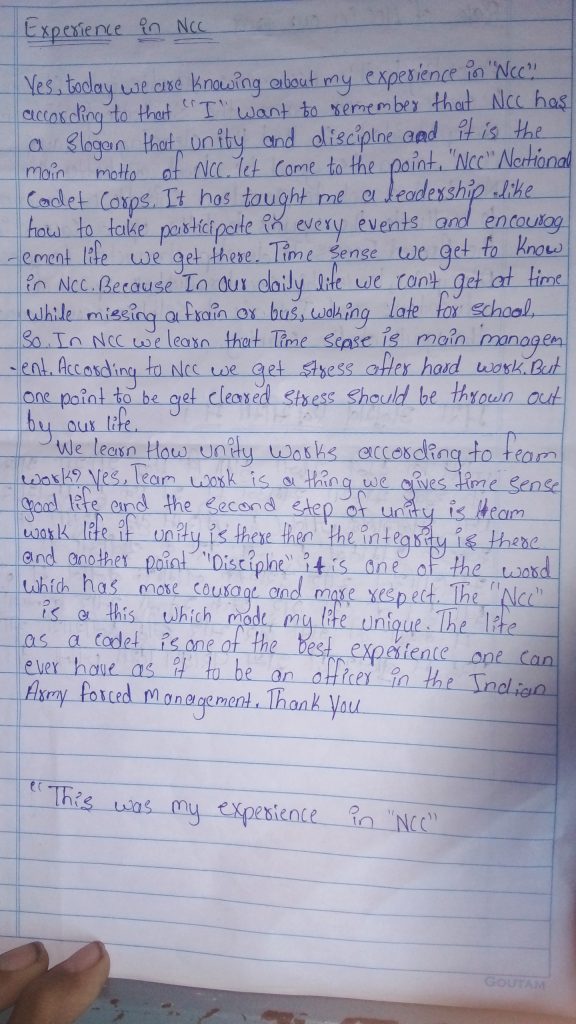 Experience in Ncc
Yes, today we are knowing about my experience in "Ncc"!
according to that "I" want to remember that Ncc has
a slogan that, unity and disciplne and it is the
main motto of NCC. let come to the point, "Ncc" National
Cadet Corps. It has taught me a leadership like
how to take participate in every events and encourag
-ement life we get there. Time sense we get to know
in NCC. Because In our daily life we can't get at time
while missing a train or bus, woking late for school,
So. In NCC we learn that Time sense is main managem
-ent. According to NCC we get stress after hard work. But
one point to be get cleared stress should be thrown out
by our life.
We learn How unity works according to team
work? Yes, Team work is a thing we gives time sense
good life and the second step of unity is team
work life if unity is there then the integrity is there
and another point "Disciplne" it is one of the word
which has more courage and more respect. The "Ncc"
is a this which made my life unique. The life
as a cadet is one of the best experience one can
ever have as it to be an officer in the Indian
Army forced management. Thank You
"This was my experience in "NCC"
GOUTAM